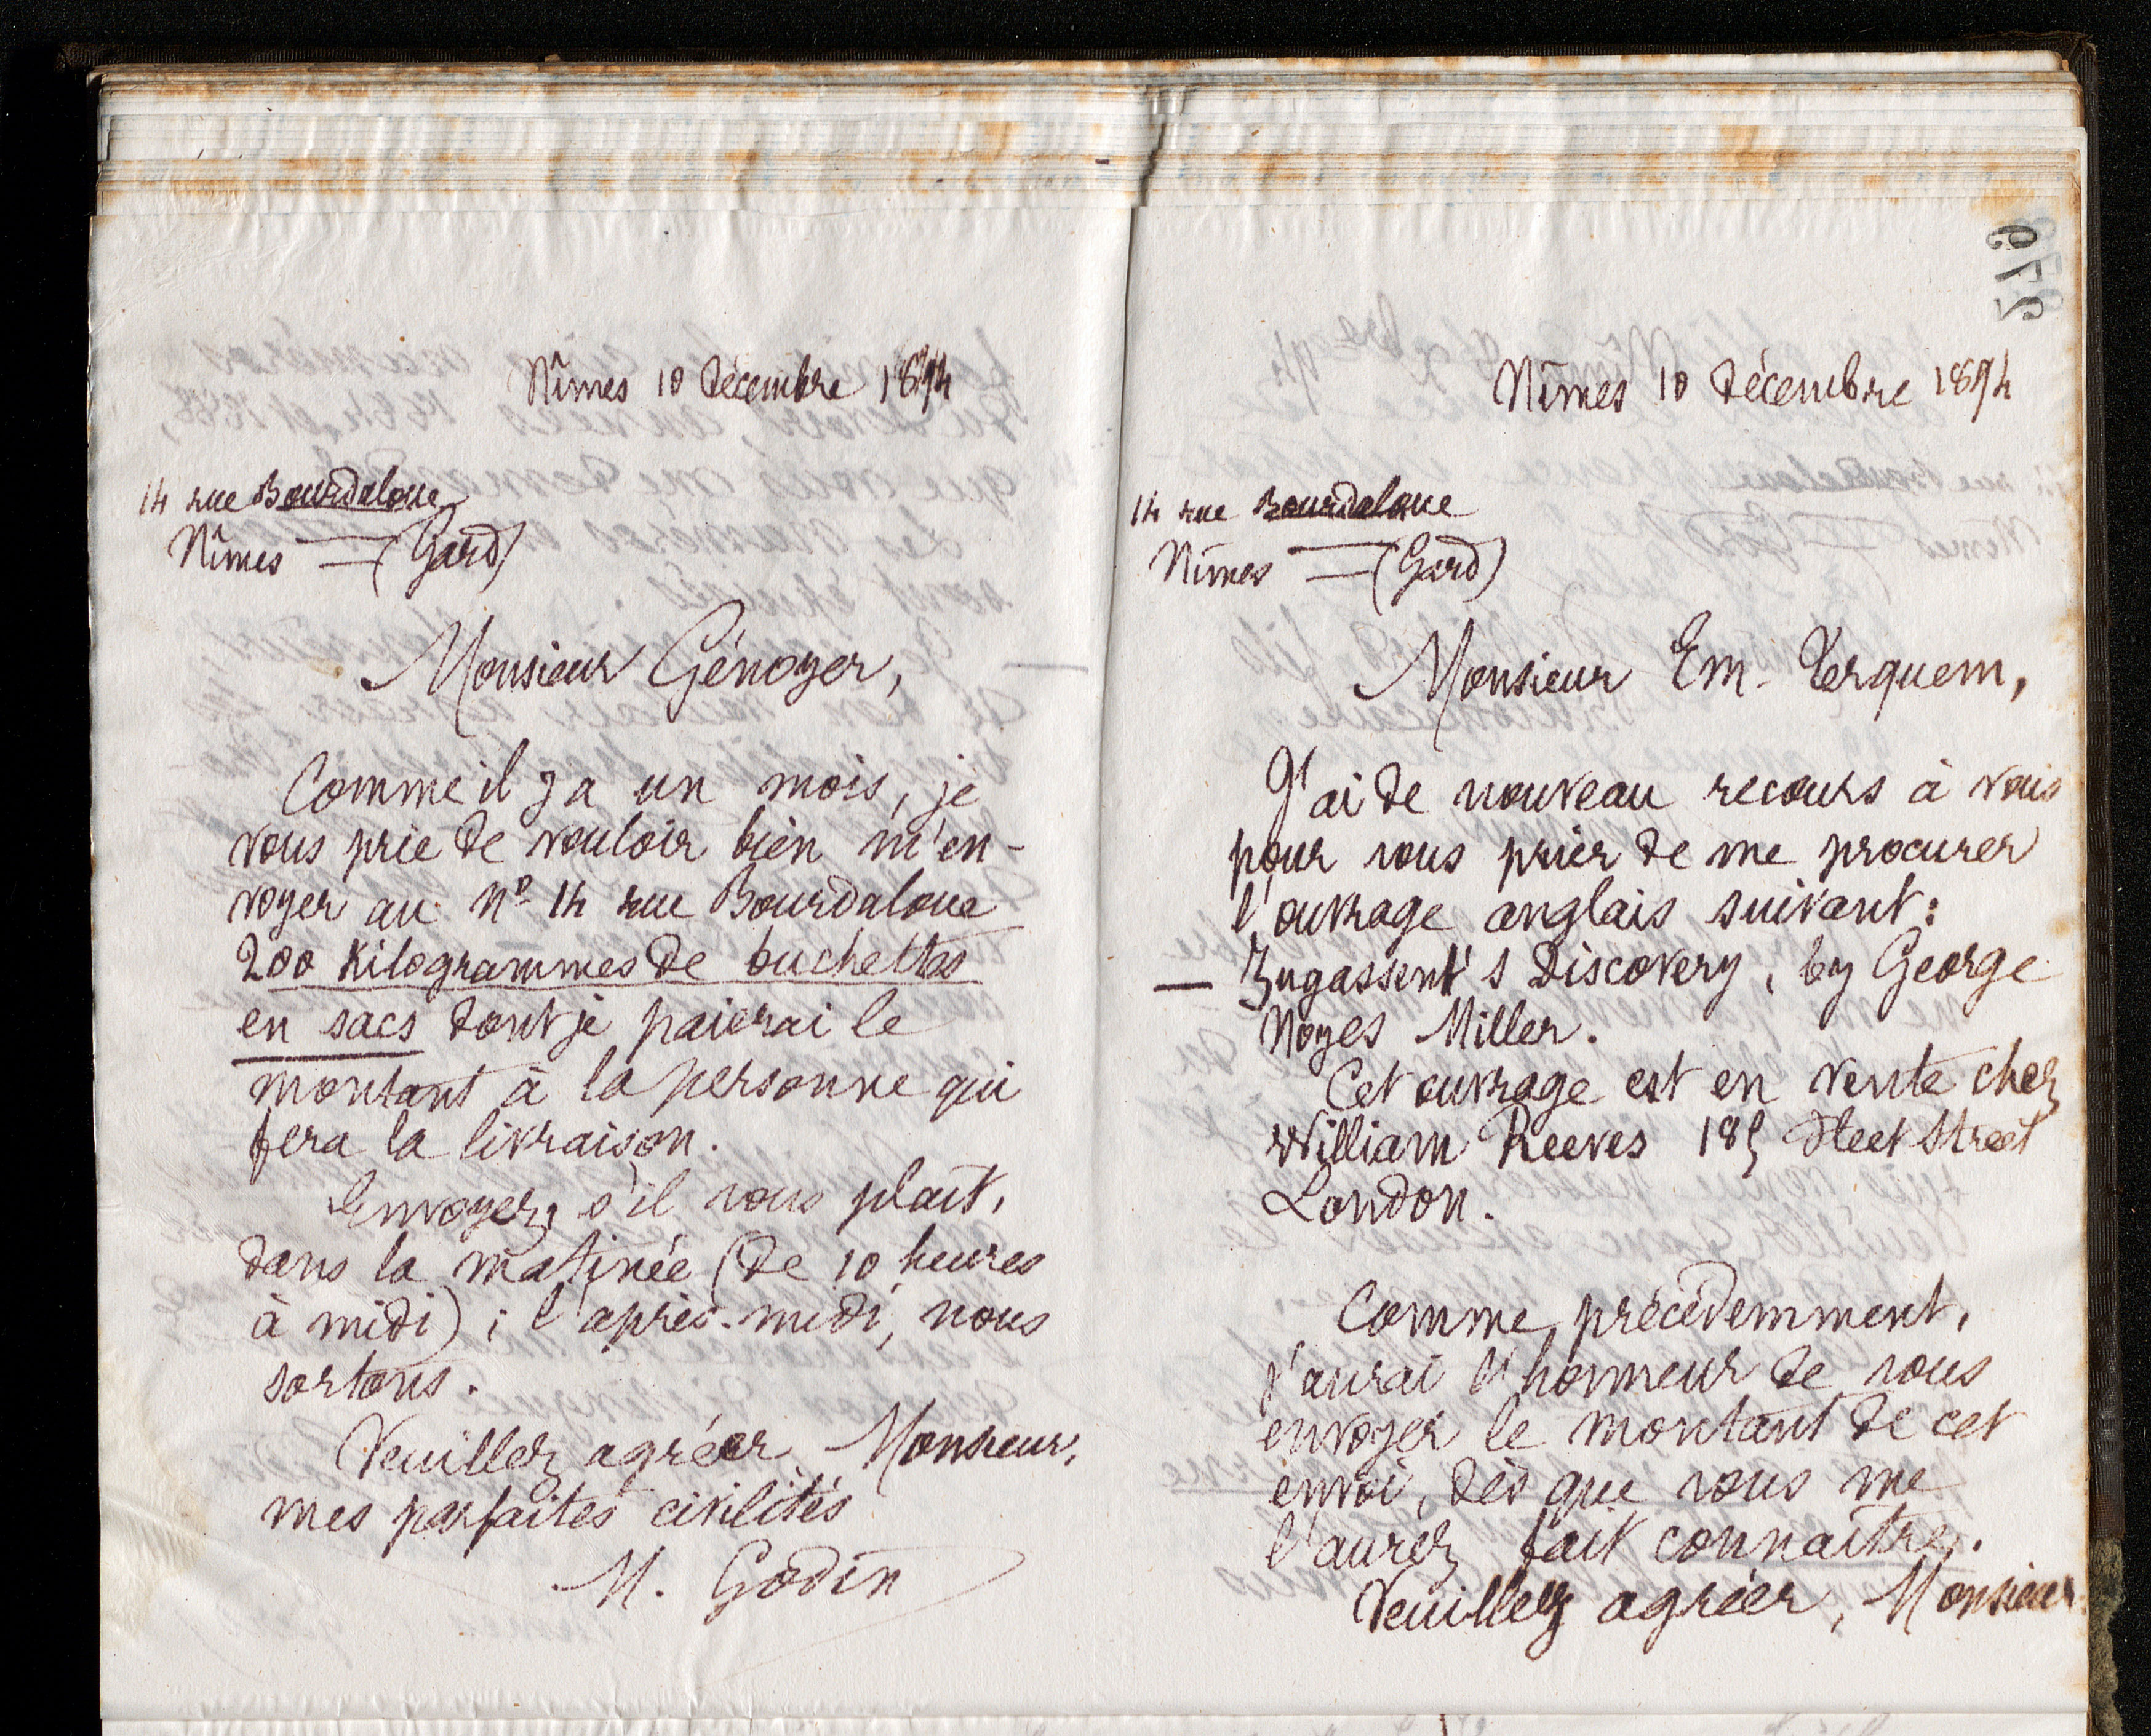 Nîmes 10 Décembre 1894
14 rue Bourdaloue
Nîmes — (Gard)
Monsieur Génoyer,
Comme il y a un mois, je
vous prie de vouloir bien m'en-
voyer au Nº 14 rue Bourdaloue
200 Kilogrammes de buchettes
en sacs dont je paierai le
montant à la personne qui
fera la livraison.
Envoyez, s'il vous plaît,
dans la matinée (de 10 heures
à midi) ; l'après-midi, nous
sortons.
Veuillez agréer Monsieur,
mes parfaites civilités
M. Godin
579
Nîmes 10 Décembre 1894
14 rue Bourdaloue
Nîmes — (Gard)
Monsieur Em. Terquem,
J'ai de nouveau recours à vous
pour vous prier de me procurer
l'ouvrage anglais suivant :
— Zugassent's Discovery, by George
Noyes Miller.
Cet ouvrage est en vente chez
William Reeves 185 Fleet Street
London.
Comme précédemment,
j'aurai l'honneur de vous
envoyer le montant de cet
envoi, dès que vous me
l'aurez fait connaître.
Veuillez agréer, Monsieur